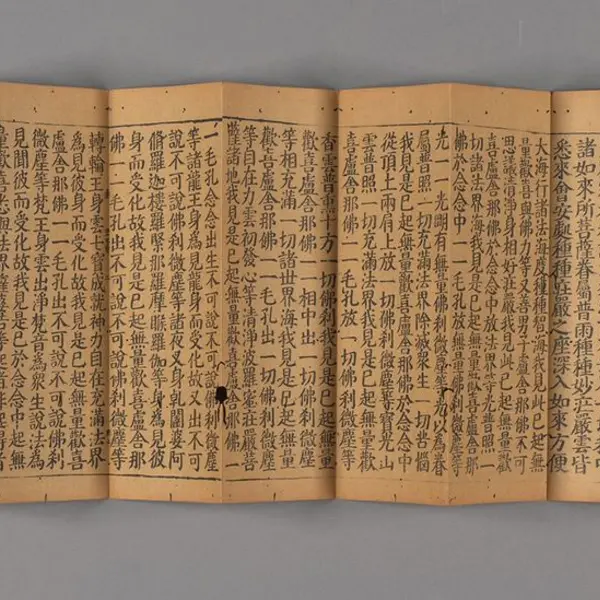 諸如來所菩薩眷屬普雨種種妙莊嚴雲皆
悉來會安處種種莊嚴之座深入如來方便
大海行諸法海度種種智海我見此已起無
量歡喜與佛力等又善男子盧舍那佛不可
思議清淨身相好莊嚴我見此已起無量歡
喜盧舍那佛於念念中放法界等光普照一
切諸法界海我見是已起無量歡喜盧舍那
佛於念念中一一毛孔放無量佛刹微塵等
光一一光明有無量佛刹微塵等光以為眷
屬普照一切充滿法界除滅衆生一切苦惱
我見是已起無量歡喜盧舍那佛於念念中
從頂上兩肩上放一切佛刹微塵等寶光山
雲普照一切充滿法界我見是已起無量歡
喜盧舍那佛一一毛孔放一切佛刹微塵等
香雲普熏十方一切佛刹我見是已起無量
歡喜盧舍那佛一一相中出一切佛刹微塵
等相充滿一切諸世界海我見是已起無量
歡喜盧舍那佛一一毛孔出一切佛刹微塵
等自在力雲初發心等清淨波羅蜜莊嚴菩
薩諸地我見是已起無量歡喜盧舍那佛一
一毛孔念念出生不可說不可說佛刹微塵
等諸龍王身為見龍身而受化故又出不可
說不可說佛刹微塵等諸夜叉身乾闥婆阿
脩羅迦樓羅緊那羅摩睺羅伽等身為見彼
身而受化故我見是已起無量歡喜盧舍那
佛一一毛孔出不可說不可說佛刹微塵等
轉輪王身雲七寶成就神力自在充滿法界
為見彼身而受化故我見是已起無量歡喜
盧舍那佛一一毛孔出不可說不可說佛刹
微塵等梵王身雲出淨梵音為衆生說法為
見聞彼而受化故我見是已於念念中起無
量歡喜悉與法界薩